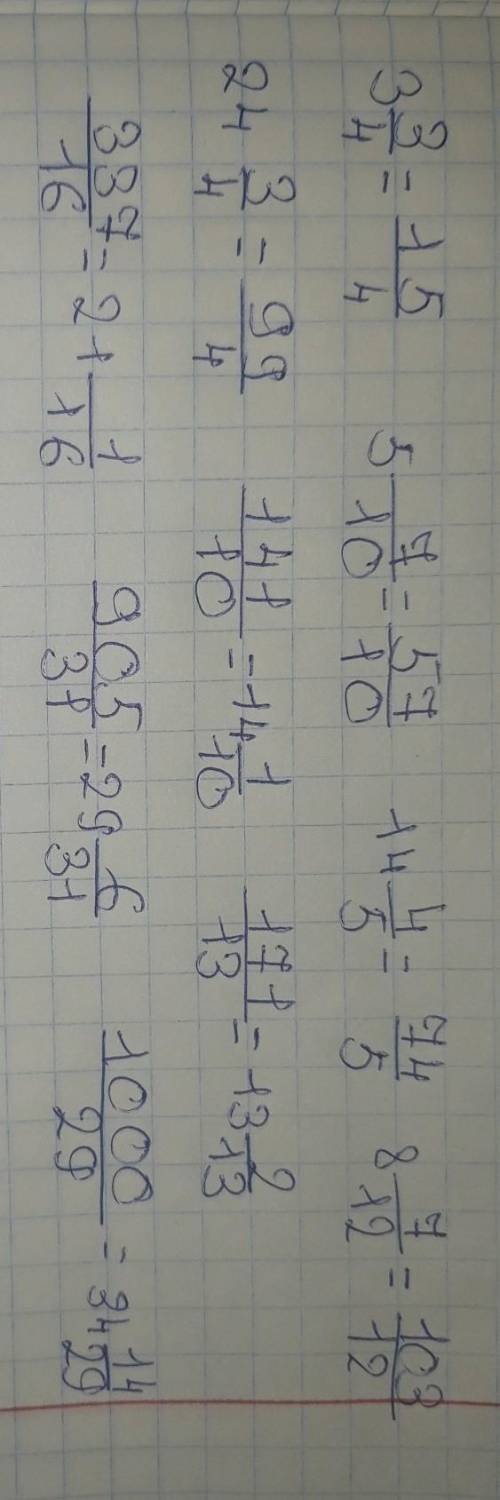 3 3/4 = 15/4 5 7/10 = 57/10 14 4/5 = 74/5 8 7/12 = 103/12
24 3/4 = 99/4 141/10 = 14 1/10 171/13 = 13 2/13
337/16 = 21 1/16 905/31 = 29 6/31 1000/29 = 34 14/29